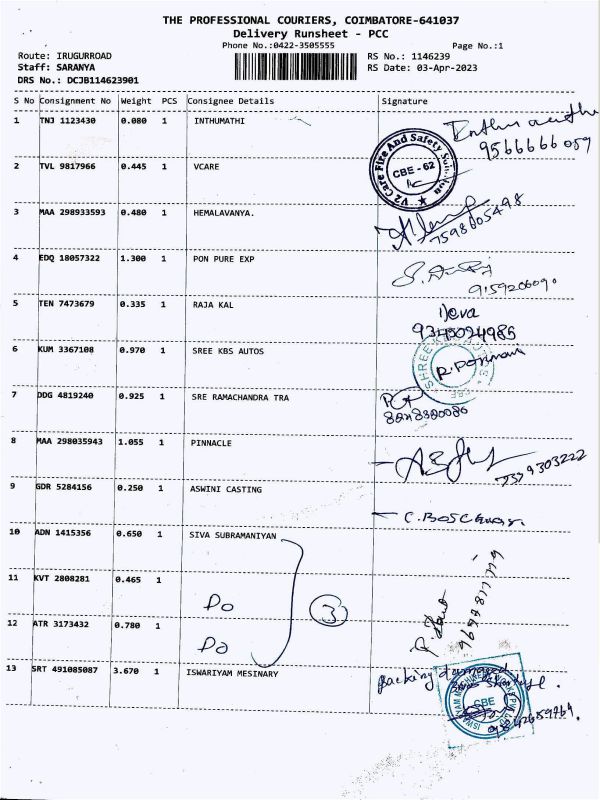 THE PROFESSIONAL COURIERS, COIMBATORE-641037
Delivery Runsheet - PCC
Phone No.:0422-3505555 Page No.:1
Route: IRUGURROAD RS No.: 1146239
Staff: SARANYA RS Date: 03-Apr-2023
DRS No.: DCJB114623901
S No Consignment No Weight PCS Consignee Details Signature
1 TNJ 1123430 0.080 1 INTHUMATHI
9566666059
2 TVL 9817966 0.445 1 VCARE
V2 Care Fire And Safety
CBE - 62
3 MAA 298933593 0.480 1 HEMALAVANYA.
7598605498
4 EDQ 18057322 1.300 1 PON PURE EXP
5 TEN 7473679 0.335 1 RAJA KAL
Deva
9345024985
6 KUM 3367108 0.970 1 SREE KBS AUTOS
7 DDG 4819240 0.925 1 SRE RAMACHANDRA TRA
8 MAA 298035943 1.055 1 PINNACLE
9 GDR 5284156 0.250 1 ASWINI CASTING
10 ADN 1415356 0.650 1 SIVA SUBRAMANIYAN
11 KVT 2808281 0.465 1
Do
3
12 ATR 3173432 0.780 1
Do
13 SRT 491085087 3.670 1 ISWARIYAM MESINARY
packing damaged
CBE